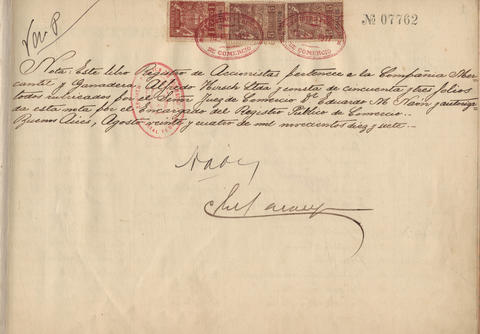 Ver P.
Nº 07762
DE COMERCIO
DE COMERCIO
Nota: Este libro Registro de Accionistas pertenece a la Compañia Mer-
cantil y Ganadera Alfredo Hirsch Ltda y consta de cincuenta y tres folios
todos rubricados por el Señor Juez de Comercio Dr Eduardo M. Naón y autoriza-
da esta nota por el Encargado del Registro Público de Comercio.
Buenos Aires, Agosto veinte y cuatro de mil novecientos diez y siete.
Naón